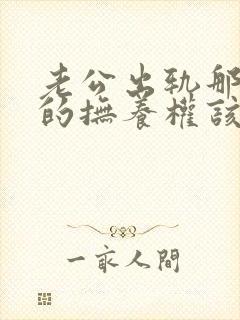 老公出轨那
的撫養權該
一家人間